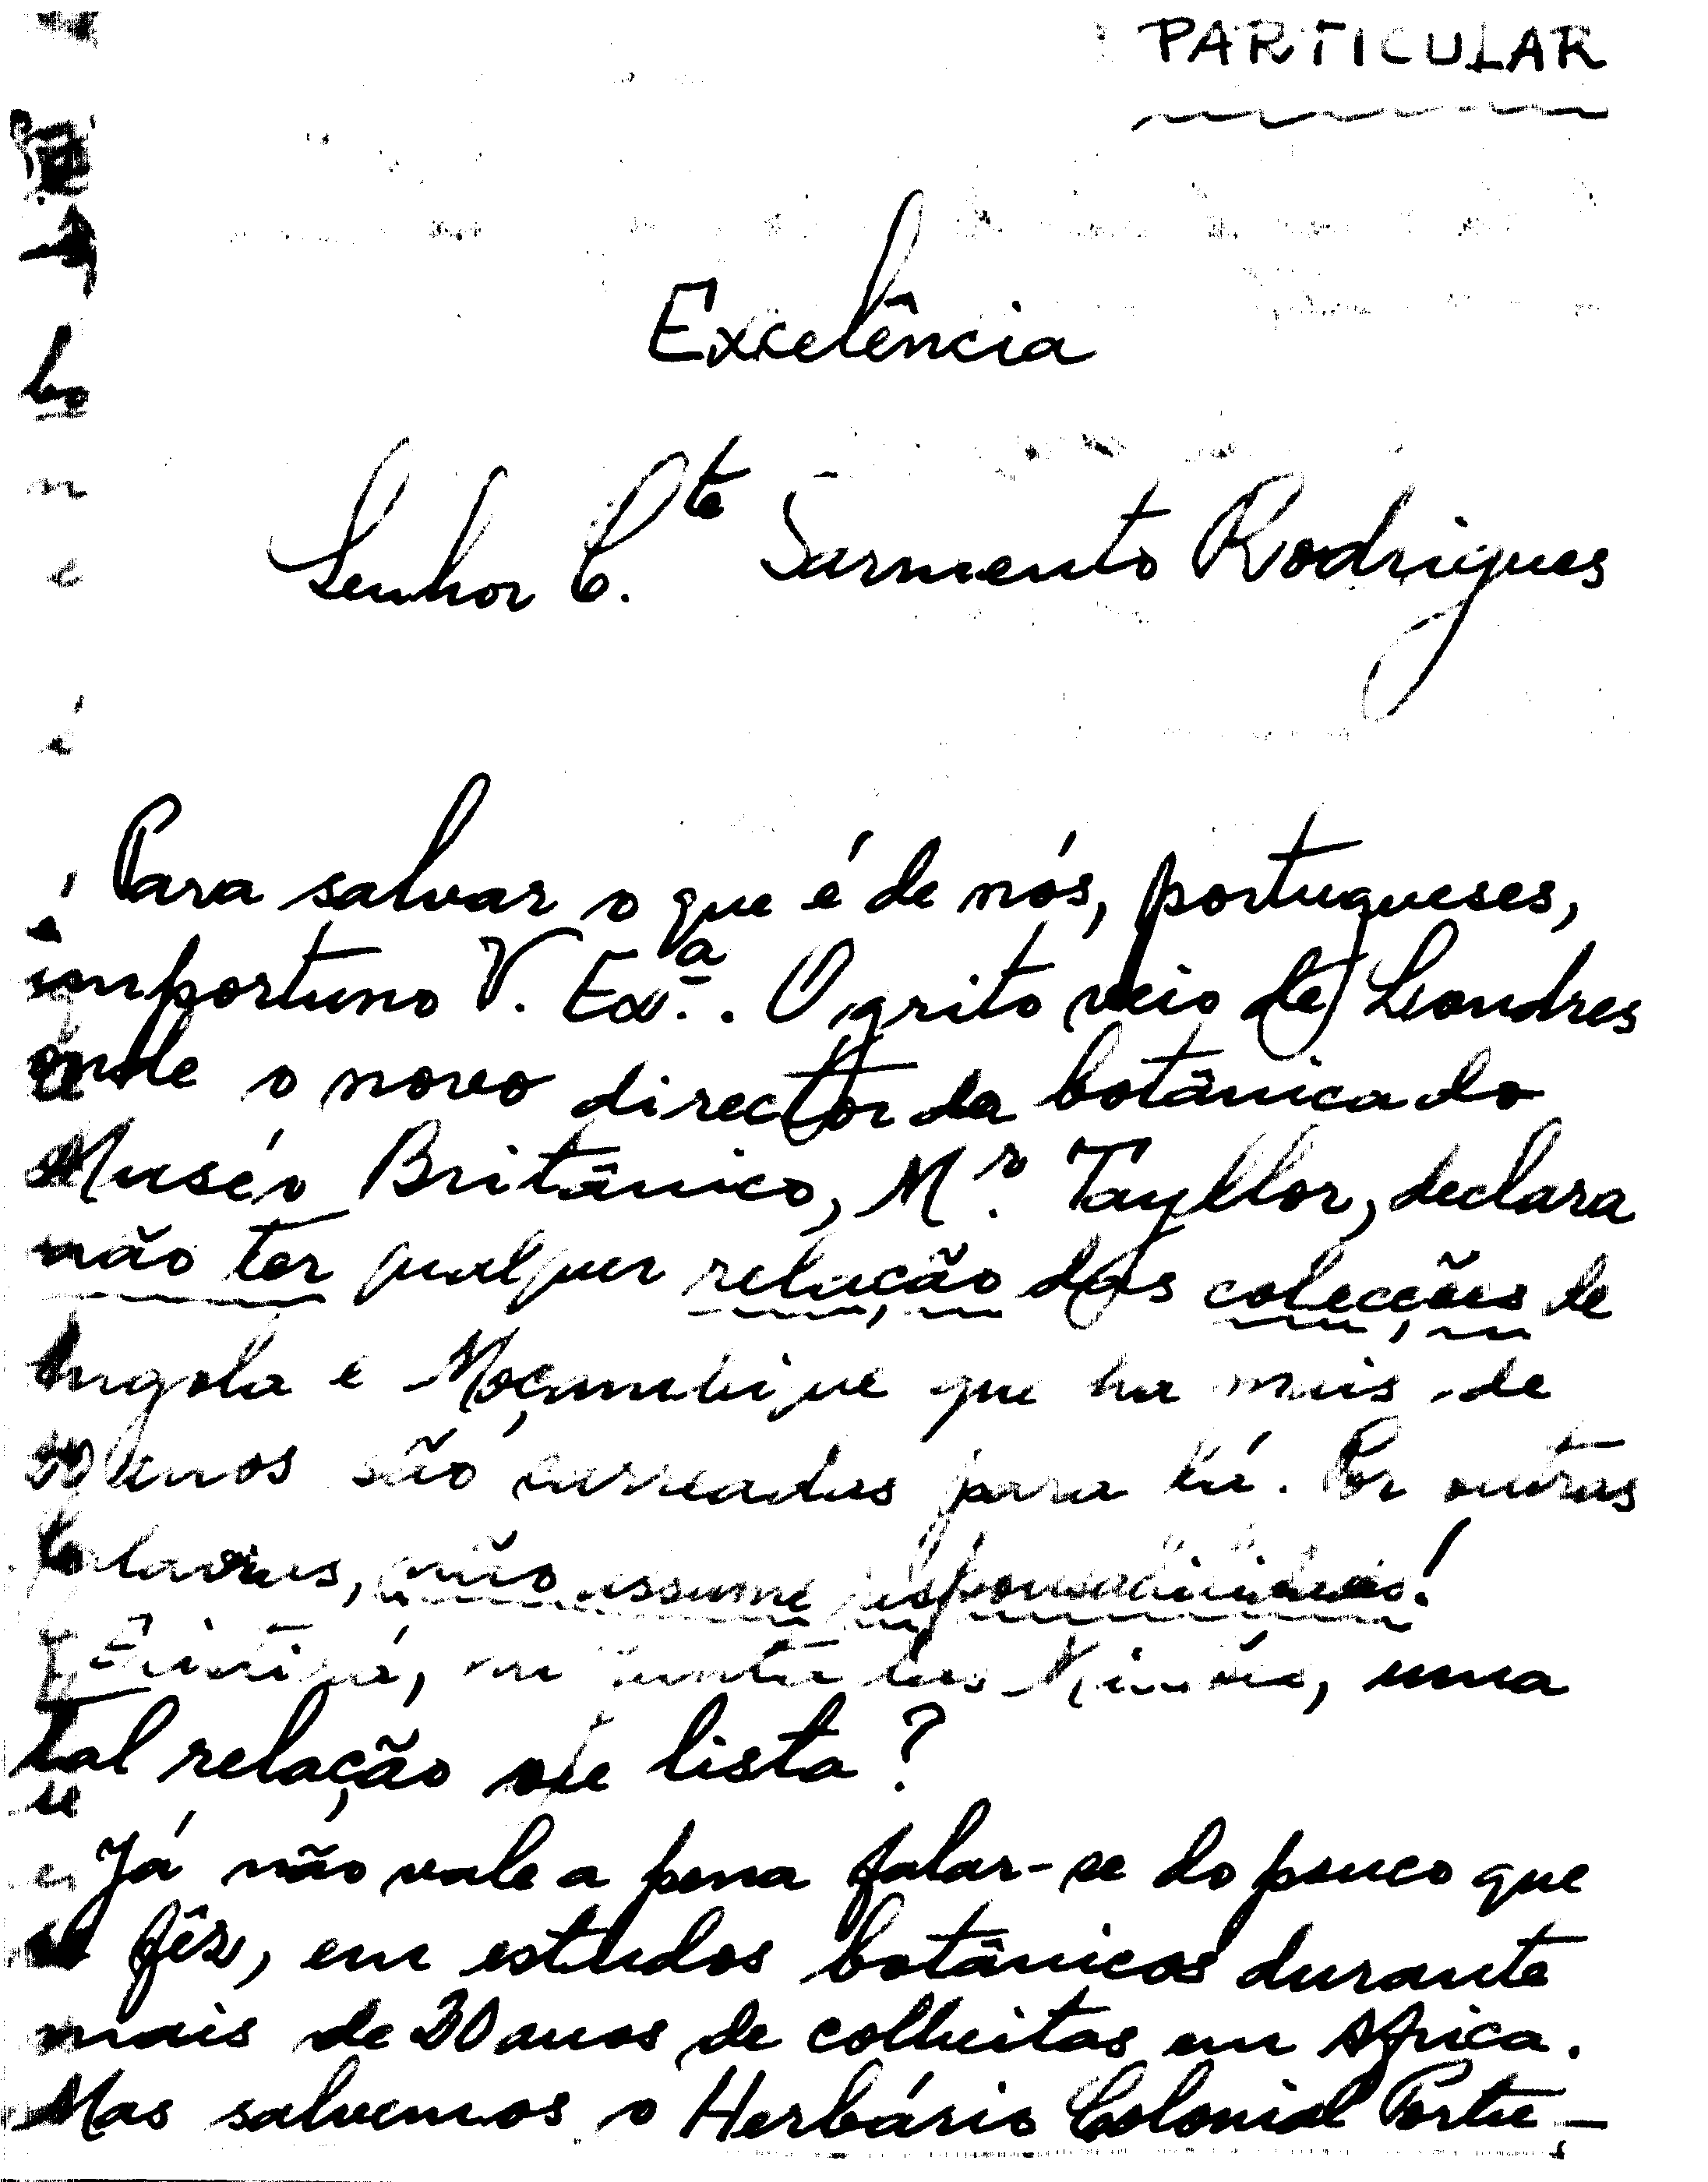 PARTICULAR
Excelência
Senhor C.te Sarmento Rodrigues
Para salvar o que é de nós, portugueses,
importuno V. Ex.ª. O grito veio de Londres
onde o novo director da botânica do
Muséo Britânico, M.r Tayllor, declara
não ter qualquer relação das colecções de
Angola e Moçambique que ha mais de
30 anos são carreadas para lá. Por outras
palavras, não assume responsabilidades!
Existirá, na Junta das Missões, uma
tal relação ou lista?
Já não vale a pena falar-se do pouco que
se fêz, em estudos botânicos durante
mais de 30 anos de colheitas em Africa.
Mas salvemos o Herbário Colonial Portu-